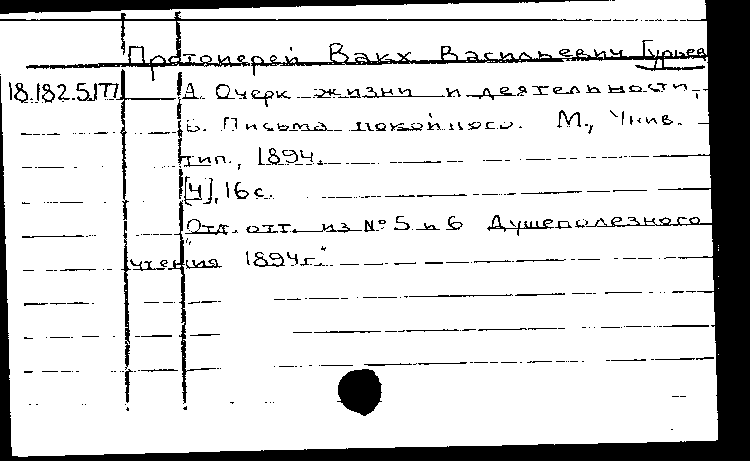 Протоиерей Вакх Васильевич Гурьев
18.182.5.177 А. Очерк жизни и деятельности,
Б. Письма покойного. М., Унив.
тип., 1894.
[4], 16 с.
Отд. отт. из № 5 и 6 "Душеполезного
чтения 1894г."